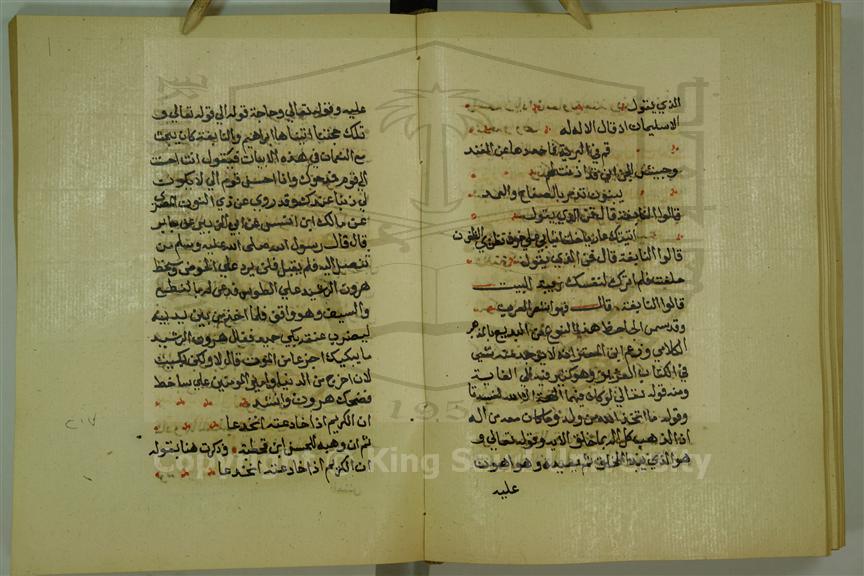 الذي يقول
الا سليمان اذ قال الاله له
قم في البرية فاحددها عن الفند
وخيس الجن اني قد اذنت لهم
يبنون تدمر بالصفاح والعمد
قالوا النابغة قال فمن الذي يقول
اتيتك عاريا خلقا ثيابي على خوف تظن بي الظنون
قالوا النابغة قال فمن الذي يقول
حلفت فلم اترك لنفسك ريبة البيت
قالوا النابغة قال فهو اشعر العرب
وقد سمى الجاحظ هذا النوع من البديع
الكلامي وزعم ابن المعتز انه لا يوجد منه شيء
في الكتاب العزيز وهو
ومنه قوله تعالى لو كان فيهما آلهة الا الله لفسدتا
وقوله ما اتخذ الله من ولد وما كان معه من اله
اذا لذهب كل اله بما خلق الاية وقوله تعالى و
هو الذي يبدا الخلق ثم يعيده وهو اهون
عليه
عليه وقوله تعالى وحاجه قومه الى قوله تعالى و
تلك حجتنا اتيناها ابراهيم والنابغة كان يبحث
مع النعمان في هذه الابيات فيقول انت احسنت
الى قوم فمدحوك وانا احسن قوم الي
عن مالك ابن انس عن ابي الزبير عن جابر
قال قال رسول الله صلى الله عليه وسلم من
تنصل اليه فلم يقبل فلن يرد علي الحوض وسخط
هرون الرشيد على الطوسي فدعى له بالنطع
والسيف وهو واقف فلما اخذ من بين يديه
ليضرب عنقه بكى حميد فقال هرون الرشيد
ما يبكيك اجزعا من الموت قال لا ولكن بكيت
لان اخرج من الدنيا وامير المومنين علي ساخط
فضحك هرون وانشد
ان الكريم اذا خادعته انخدعا
ثم ان وهبه للحسن ابن قحطبة وذكرت هنا بقوله
ان الكريم اذا خادعته انخدعا
٢١٧
Copyright © King Saud University
195